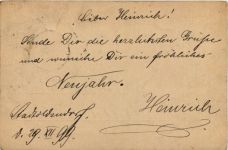 Lieber Heinrich!
Sende Dir die herzlichsten Grüße
und wünsche Dir ein fröhliches
Neujahr.
Heinrich
d. 29. XII